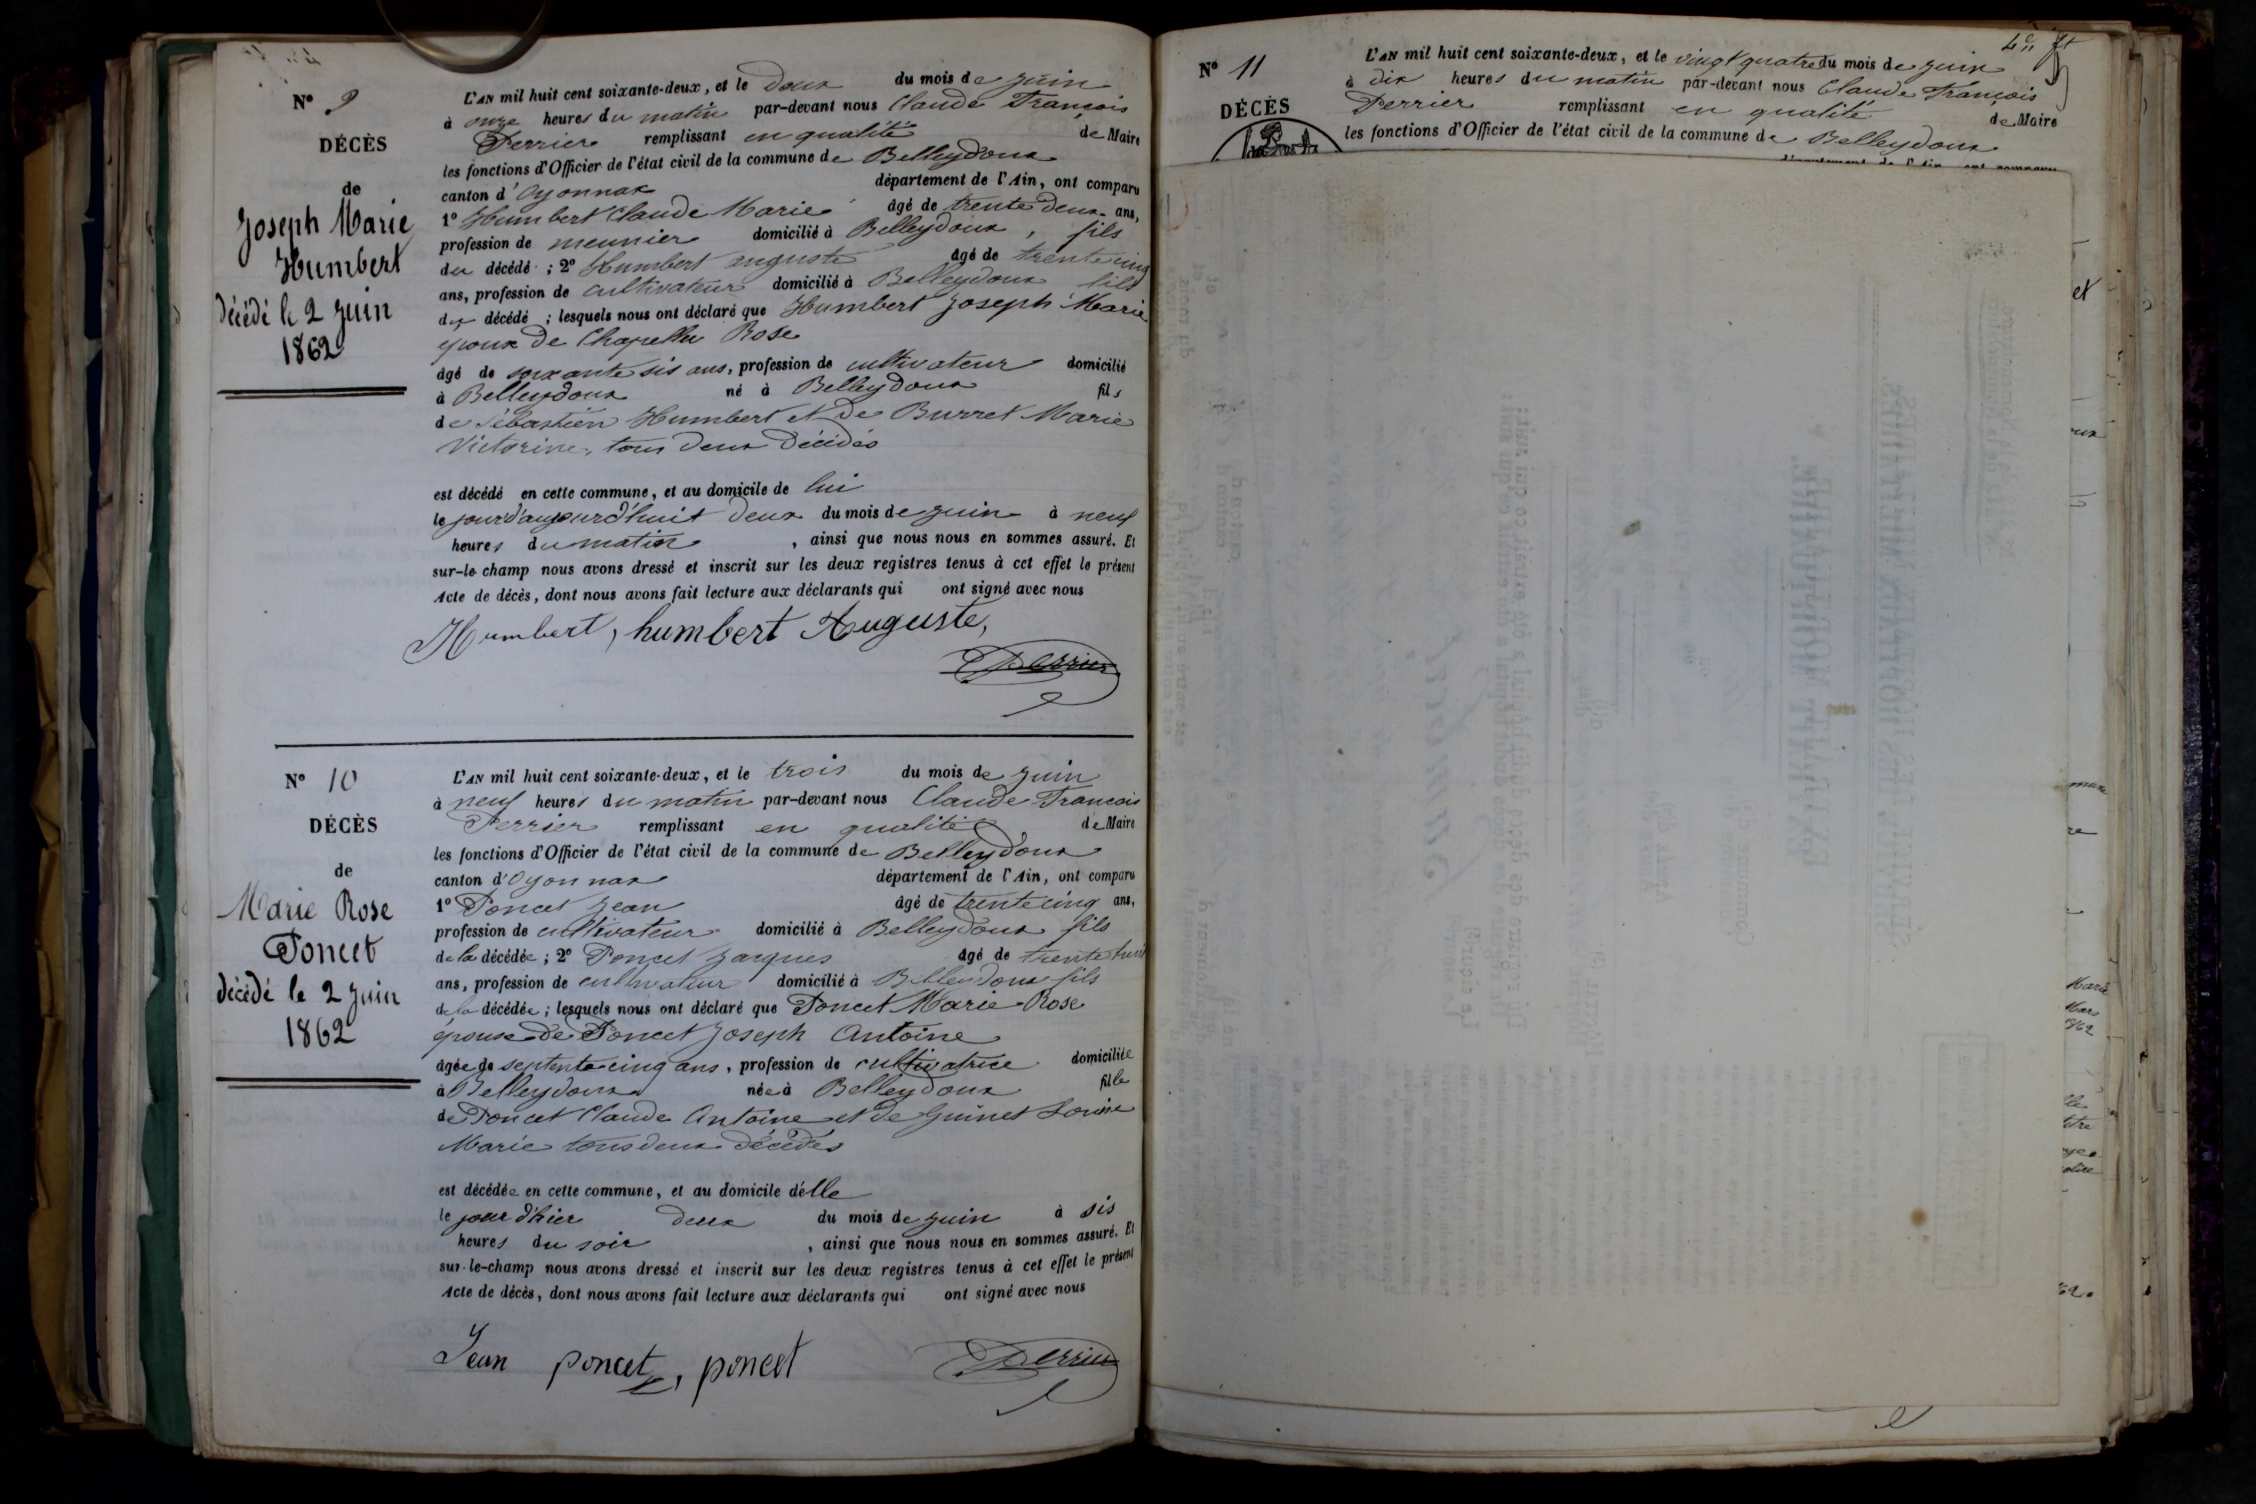 N° 9
DÉCÈS
de
Joseph Marie
Humbert
décédé le 2 juin
1862
L'AN mil huit cent soixante-deux, et le deux du mois de juin
à onze heures du matin par-devant nous Claude François
Perrier remplissant en qualité de Maire
les fonctions d'Officier de l'état civil de la commune de Belleydoux
canton d'Oyonnax département de l'Ain, ont comparu
1° Humbert Claude Marie âgé de trente deux ans,
profession de meunier domicilié à Belleydoux, fils
du décédé ; 2° Humbert auguste âgé de trente cinq
ans, profession de cultivateur domicilié à Belleydoux fils
du décédé ; lesquels nous ont déclaré que Humbert Joseph Marie
epoux de Chapellu Rose
âgé de soixante sis ans, profession de cultivateur domicilié
à Belleydoux né à Belleydoux fils
de Sébastien Humbert et de Burret Marie
Victorine, tous deux décédés
est décédé en cette commune, et au domicile de lui
le jour d'aujourd'huit deux du mois de juin à neuf
heures du matin, ainsi que nous nous en sommes assuré. Et
sur-le champ nous avons dressé et inscrit sur les deux registres tenus à cet effet le présent
Acte de décès, dont nous avons fait lecture aux déclarants qui ont signé avec nous
Humbert, humbert Auguste,
Perrier
N° 10
DÉCÈS
de
Marie Rose
Poncet
décédé le 2 juin
1862
L'AN mil huit cent soixante-deux, et le trois du mois de juin
à neuf heures du matin par-devant nous Claude François
Perrier remplissant en qualité de Maire
les fonctions d'Officier de l'état civil de la commune de Belleydoux
canton d'Oyonnax département de l'Ain, ont comparu
1° Poncet Jean âgé de trente cinq ans,
profession de cultivateur domicilié à Belleydoux fils
de la décédée ; 2° Poncet Jacques âgé de trente huit
ans, profession de cultivateur domicilié à Belleydoux fils
de la décédée ; lesquels nous ont déclaré que Poncet Marie Rose
épouse de Poncet Joseph Antoine
âgée de septente cinq ans, profession de cultivatrice domiciliée
à Belleydoux née à Belleydoux fille
de Poncet Claude Antoine et de Guinet Louise
Marie tous deux décédés
est décédée en cette commune, et au domicile d'elle
le jour d'hier deux du mois de juin à sis
heures du soir, ainsi que nous nous en sommes assuré. Et
sur-le-champ nous avons dressé et inscrit sur les deux registres tenus à cet effet le présent
Acte de décès, dont nous avons fait lecture aux déclarants qui ont signé avec nous
Jean poncet, poncet
Perrier
N° 11
DÉCÈS
L'AN mil huit cent soixante-deux, et le vingt quatre du mois de juin
à dix heures du matin par-devant nous Claude François
Perrier remplissant en qualité de Maire
les fonctions d'Officier de l'état civil de la commune de Belleydoux
département de l'Ain, ont comparu
et
Marie
Mars
1862